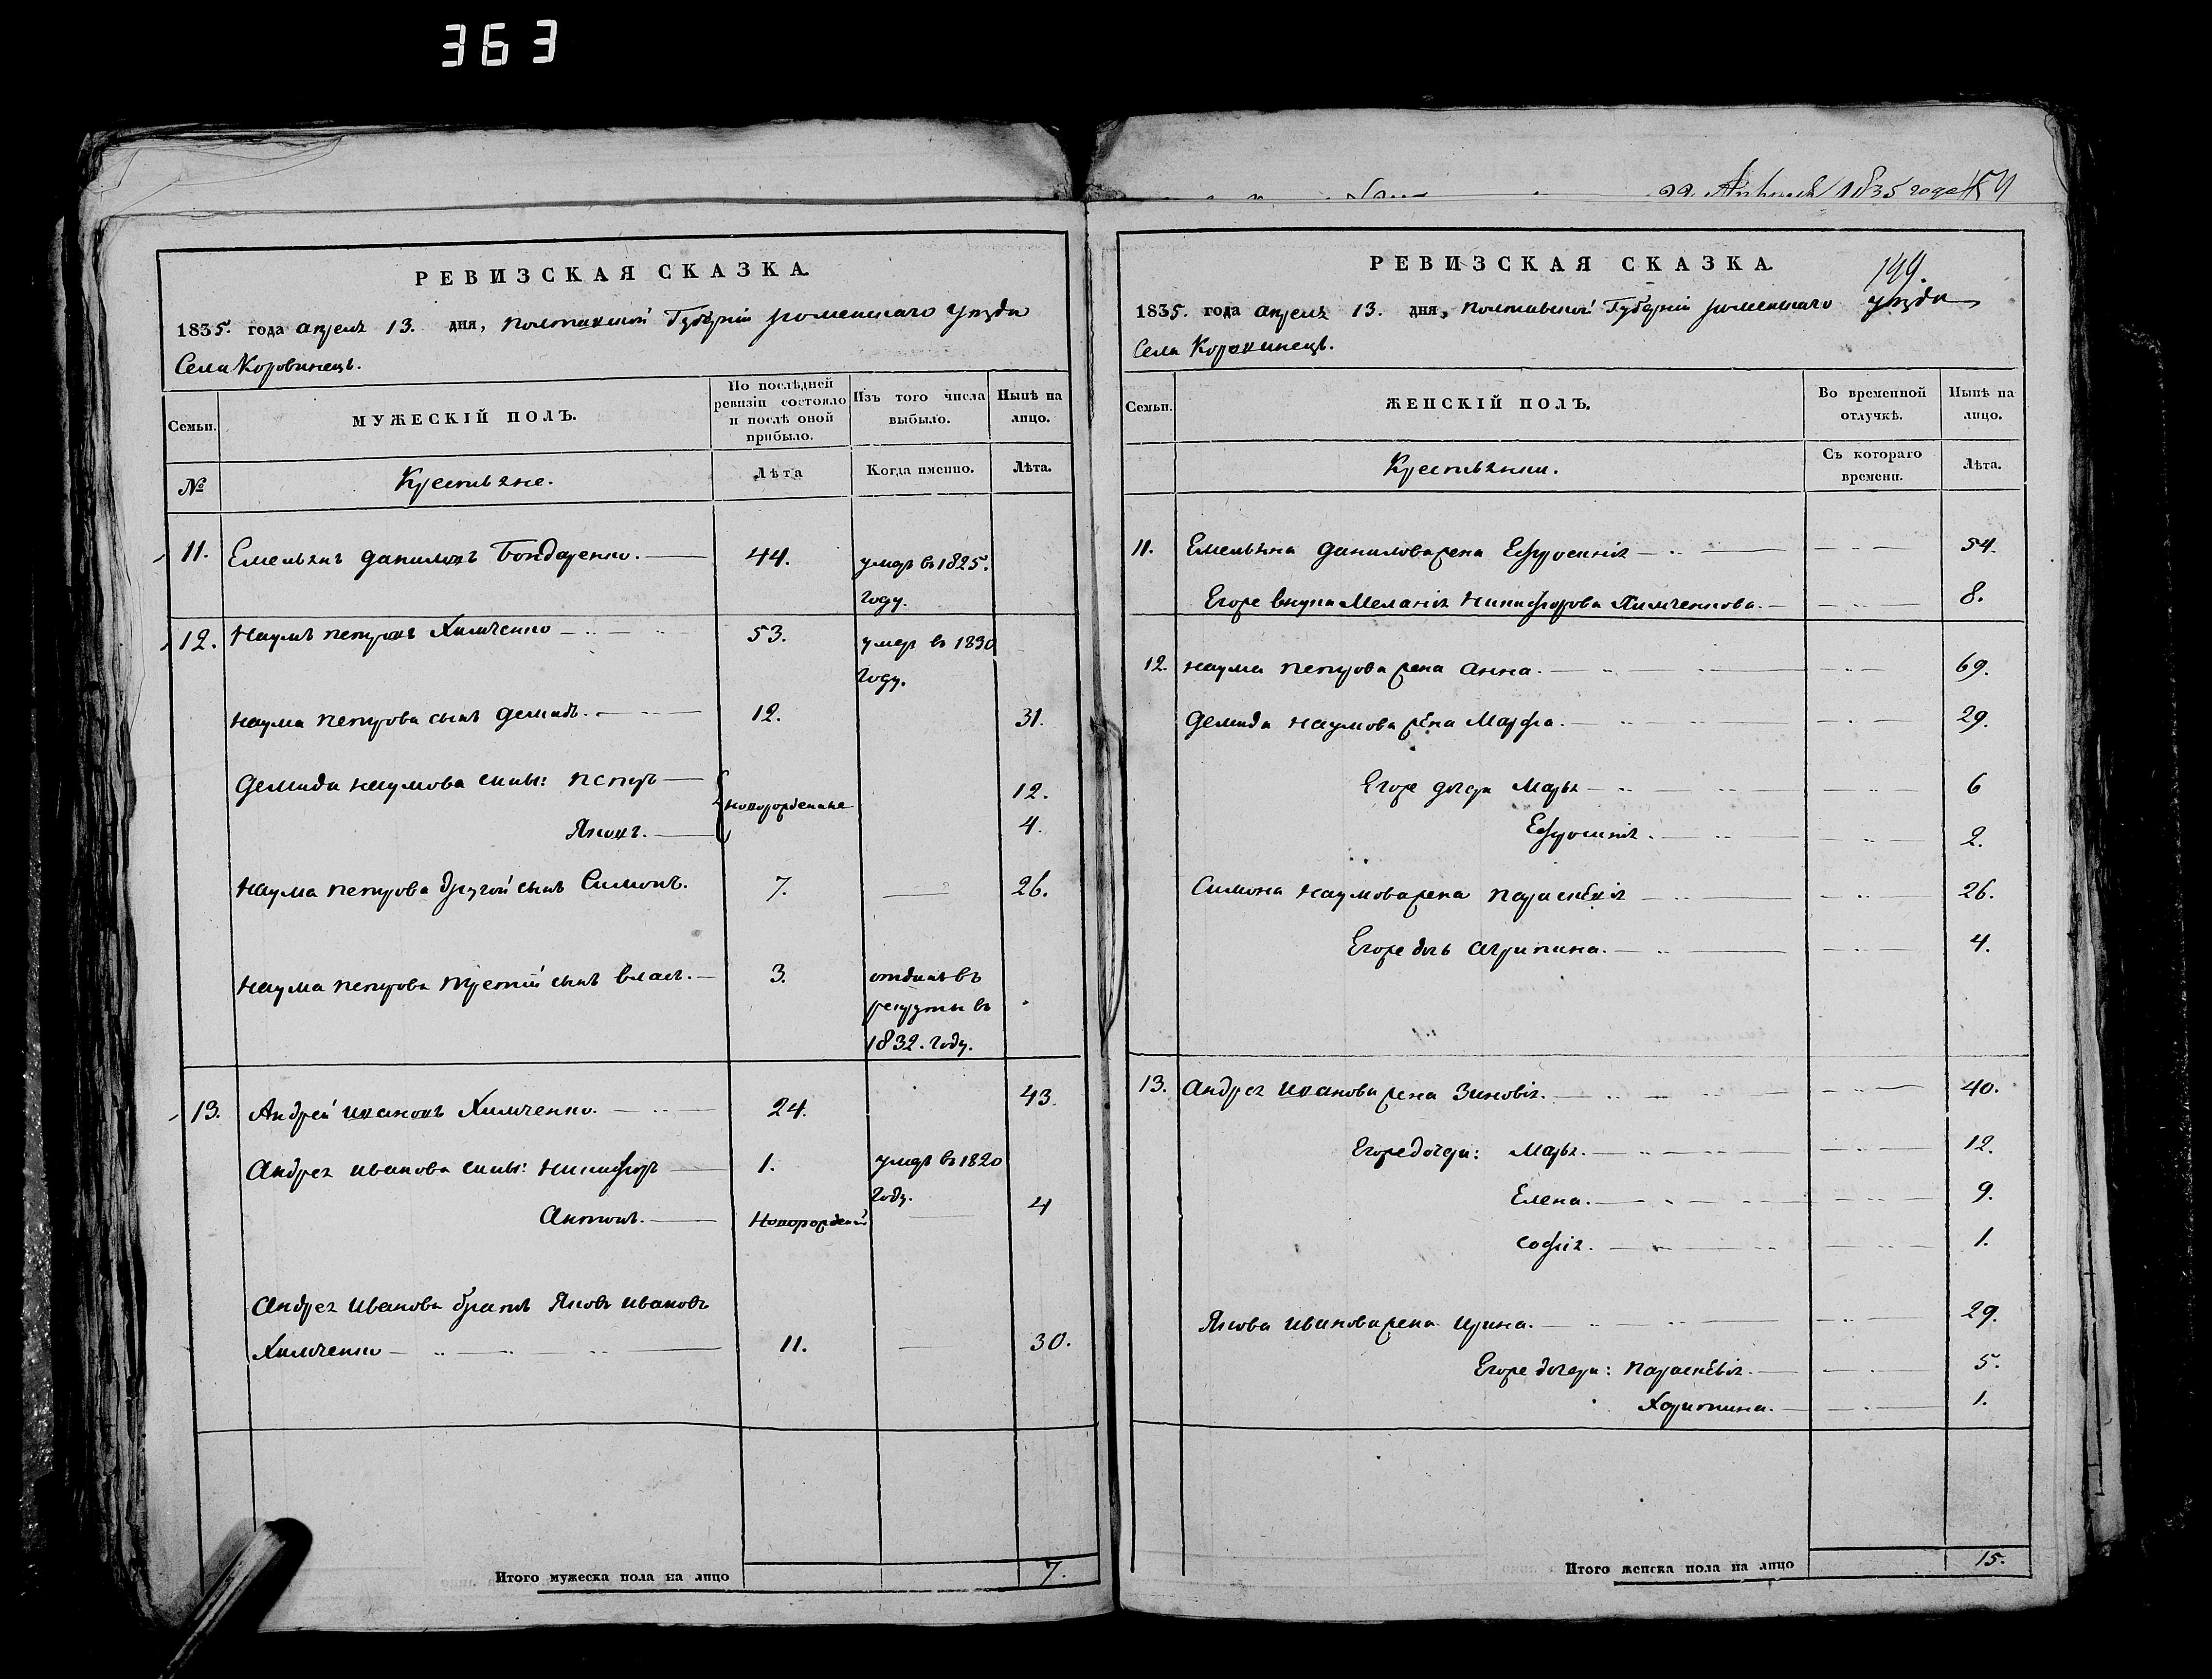 363
22 Апреля 1835 года
РЕВИЗСКАЯ СКАЗКА.
1835. года апреля 13. дня, Полтавской Губерніи роменскаго уезда
Села Коровинецъ.
Семьи.
МУЖЕСКІЙ ПОЛЪ.
По послѣдней ревизіи состояло и послѣ оной прибыло.
Изъ того числа выбыло.
Нынѣ на лицо.
№
Крестьяне.
Лѣта
Когда именно.
Лѣта.
11. Емельянъ даниловъ Бондаренко. 44. умеръ въ 1825.
году.
12. Наумъ петровъ Химченко 53. умеръ въ 1830
году.
наума петрова сынъ демидъ. 12. 31.
демида наумова сыны: петръ 12.
новорожденные
Яковъ. 4.
наума петрова другой сынъ Симонъ. 7. 26.
наума петрова третій сынъ власъ. 3. отданъ въ
рекруты въ
1832. году.
13. Андрей ивановъ Химченко. 24. 43.
андрея иванова сыны: никифоръ 1. умеръ въ 1820
году.
антонъ. новорожденый 4
андрея иванова братъ Яковъ ивановъ
Химченко 11. 30.
Итого мужеска пола на лицо 7.
РЕВИЗСКАЯ СКАЗКА.
149.
1835. года апреля 13. дня, полтавской Губерніи роменскаго уезда
Села Коровинецъ.
Семьи.
ЖЕНСКІЙ ПОЛЪ.
Во временной отлучкѣ.
Нынѣ на лицо.
Крестьянки.
Съ котораго времени.
Лѣта.
11. Емельяна данилова жена Ефросинія 54.
Егоже внука Меланія никифорова Химченкова. 8.
12. наума петрова жена анна. 69.
демида наумова жена Марфа. 29.
Егоже дочери Марья 6
Ефросинія. 2.
Симона наумова жена параскевія 26.
Егоже дочь агрипина. 4.
13. андрея иванова жена Зиновія. 40.
Егоже дочери: Марья. 12.
Елена. 9.
софія. 1.
Якова иванова жена ирина. 29.
Егоже дочери: параскевія. 5.
Харитина. 1.
Итого женска пола на лицо 15.